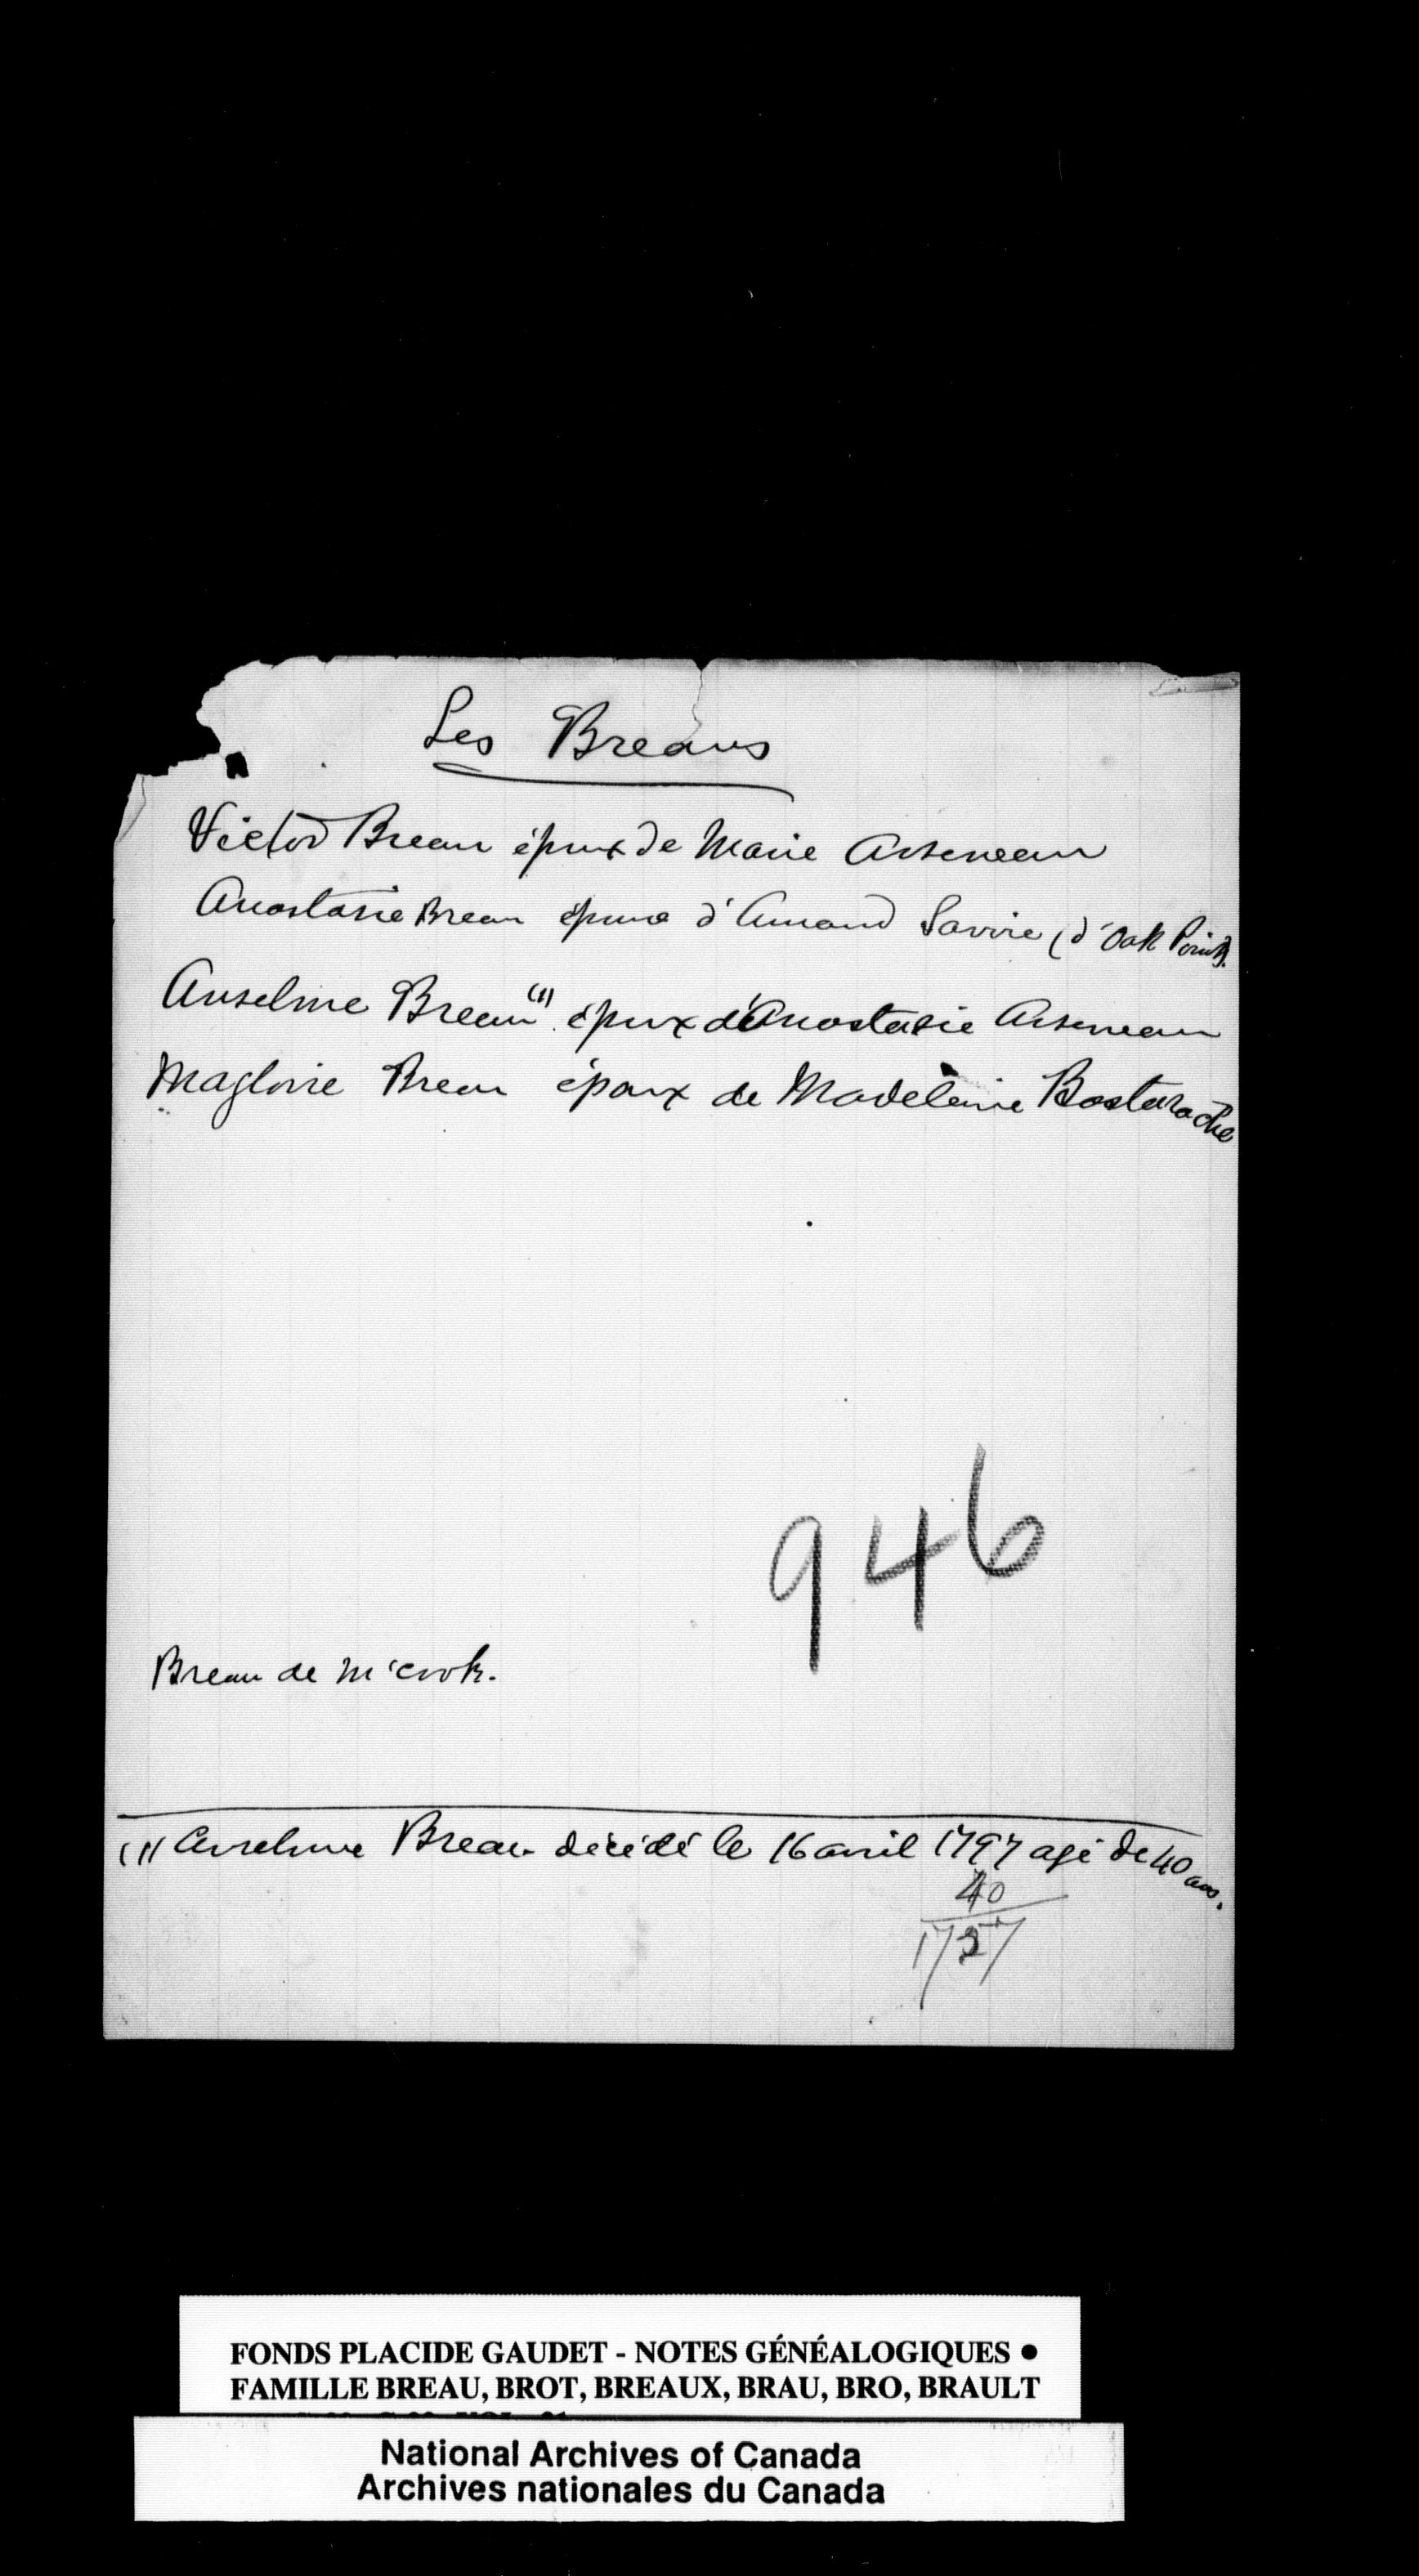 Les Breaus
Victor Breau époux de Marie Arseneau
Anastasie Breau épouse d'Amand Savoie (d'Oak Point).
Anselme Breau (1) époux d'Anastasie Arseneau
Magloire Breau époux de Madeleine Bastarache
946
Breau de
(1) Anselme Breau décédé le 16 avril 1797 agé de 40 ans.
40
1757
FONDS PLACIDE GAUDET - NOTES GÉNÉALOGIQUES •
FAMILLE BREAU, BROT, BREAUX, BRAU, BRO, BRAULT
National Archives of Canada
Archives nationales du Canada